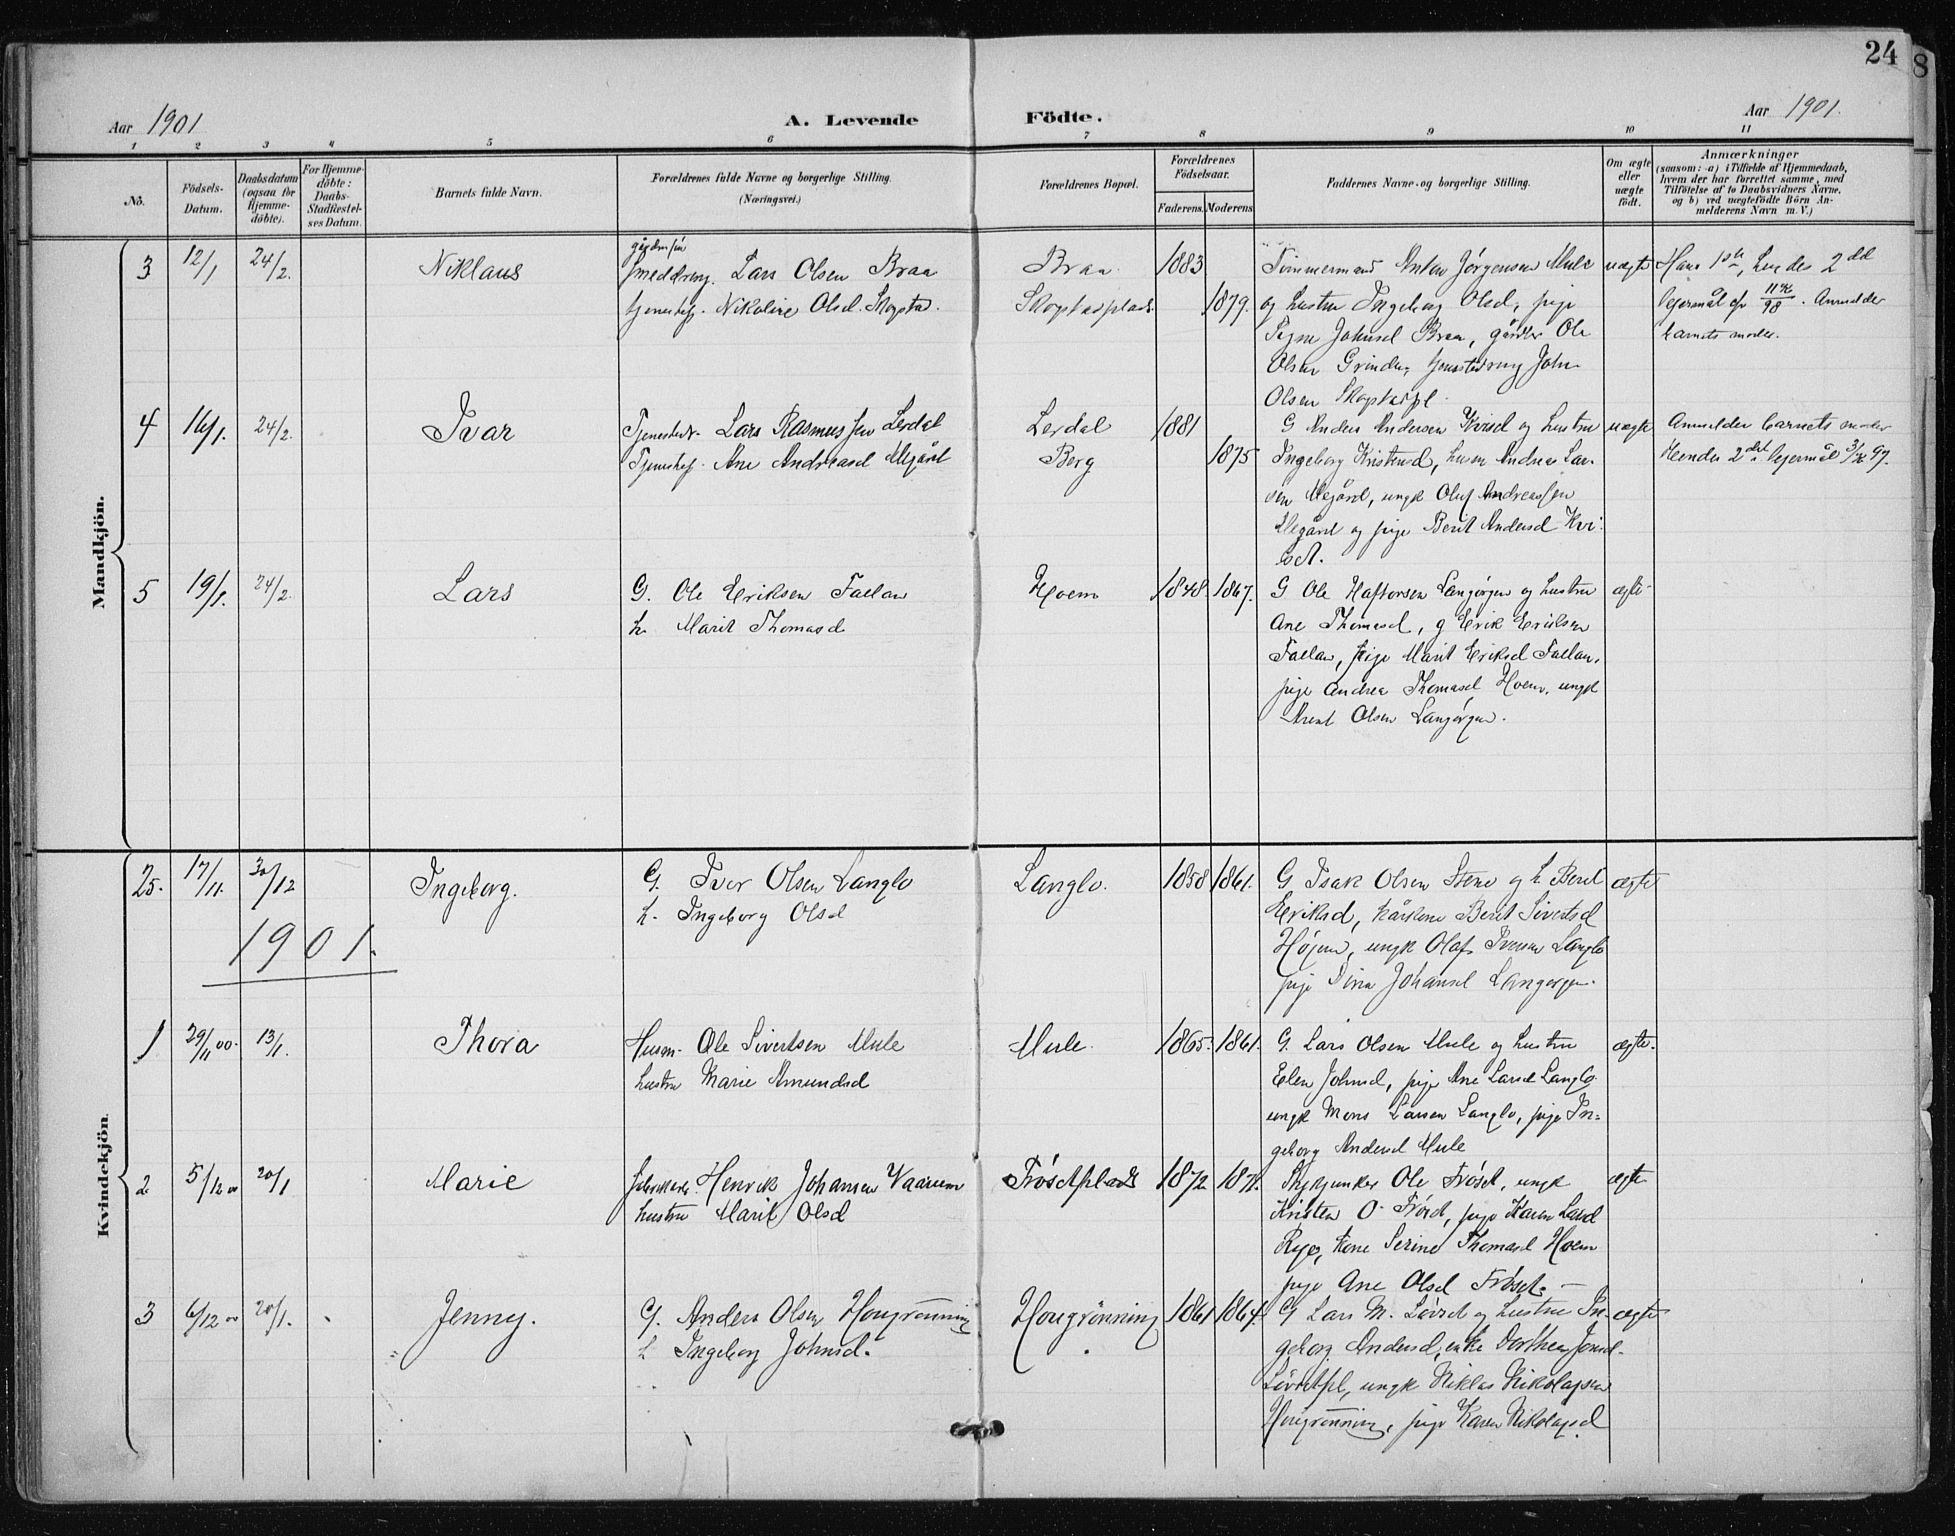 24
8
Aar 1901
A. Levende Födte.
Aar 1901.
1 2 3 4 5 6 7 8 9 10 11
No.
Födsels-Datum.
Daabsdatum (ogsaa for Hjemme-döbte).
For Hjemme-döbte: Daabs-Stadfæstel-ses Datum.
Barnets fulde Navn.
Forældrenes fulde Navne og borgerlige Stilling.
(Næringsvei.)
Forældrenes Bopæl.
Forældrenes Födselsaar.
Faderens. Moderens
Faddernes Navne og borgerlige Stilling.
Om ægte eller uægte födt.
Anmærkninger
(saasom: a) i Tilfælde af Hjemmedaab,
hvem der har forrettet samme, med
Tilföielse af to Daabsvidners Navne,
og b) ved uægtefödte Börn An-
melderens Navn m. V.)
Mandkjön.
3 12/1 24/2. Niklaus
Lars Olsen Braa
Nikoline Olsd. Skogstad.
Braa 1883
Skogstadplads. 1879.
Tømmermand Anton Jørgensen Mule
og hustru Ingeborg Olsd, pige
Signe Johnsd Braa, gårdbr Ole
Olsen Grinder, John
Olsen Skogstadpl.
uægte
Hans 1ste, hendes 2det
lejermål. Anmelder
barnets moder.
4 16/1. 24/2. Ivar
Lars Rasmussen Lerdal
Ane Andreasd Megård
Lerdal 1881
Berg 1875
G Anders Andersen Kvisd og hustru
Ingeborg Kristensd, Andreas Lar-
sen Megård, ungk Oluf Andreassen
Megård og pige Berit Andersd Kvi-
sd.
uægte
Anmelder barnets moder
Hendes 2det lejermål 97.
5 19/1. 24/2. Lars
G. Ole Eriksen Fallan
h. Marit Thomasd
Hoem 1848. 1867.
G Ole Haftorsen Langørgen og hustru
Ane Thomasd, g Erik Eriksen
Fallan, pige Marit Eriksd Fallan,
pige Andrea Thomasd Hoem, ungk
Arent Olsen Langørgen.
ægte
Kvindekjön.
25. 17/11. 30/12 Ingeborg.
G. Iver Olsen Langlo
h. Ingeborg Olsd
Langlo. 1858 1861.
G Isak Olsen Stene og h. Berit
Eriksd, kårkone Berit Sivertsd
Højem, ungk Olaf Iversen Langlo
pige Johansd Langørgen.
ægte
1901.
1 29/11 00. 13/1. Thora
Husm. Ole Sivertsen Mule
hustru Marie Amundsd
Mule. 1865. 1861.
G. Lars Olsen Mule og hustru
Elen Johnsd, pige Ane Larsd Langlo
ungk Mons Larsen Langlo, pige In-
geborg Andersd Mule
ægte.
2 5/12 00 20/1 Marie
Henrik Johansen Vaarum
hustru Marit Olsd
Frøsetplads 1872 1871.
Ole Frøset, ungk
Kristen O. Frøset, pige Karen Larsd
Rye, kone Serine Thomasd Hoem
pige Ane Olsd Frøset.
ægte
3 6/12 00 20/1. Jenny.
G. Anders Olsen Hougrønning
h Ingeborg Johnsd.
Hougrønning 1861 1864.
G Lars M. Løvset og hustru In-
geborg Andersd, enke Dorthea Jonsd
Løvsetpl, ungk Niklas Nikolajsen
Hougrønning, pige Karen Nikolajsd
ægte